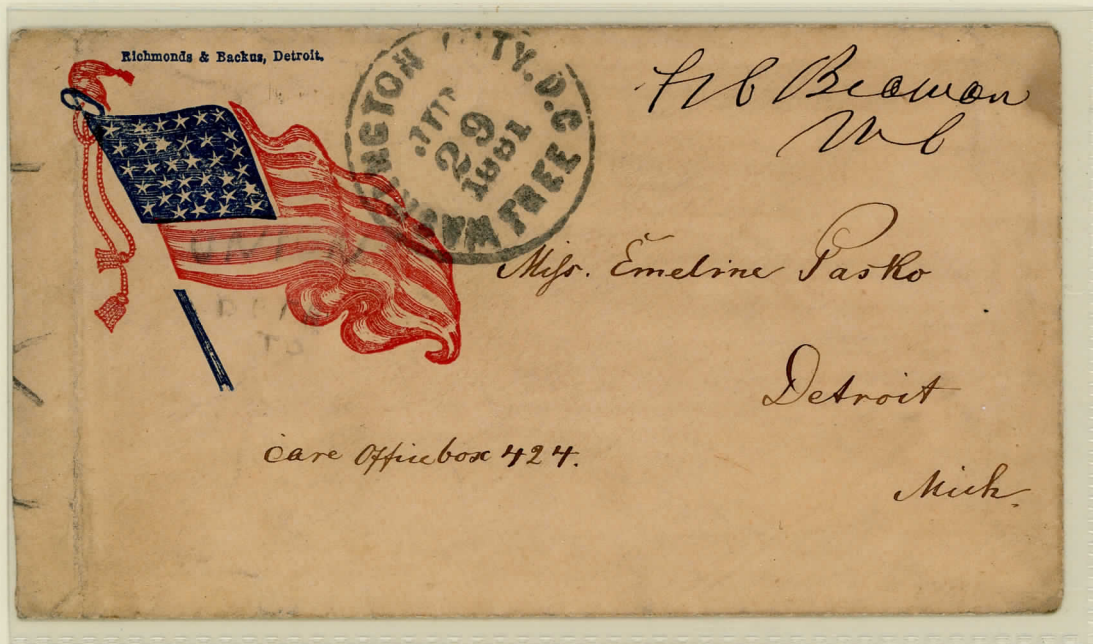 Richmonds & Backus, Detroit.
WASHINGTON CITY. D.C.
29
1861
FREE
F C Beaman
M C
Miss. Emeline Pasko
Detroit
Care Officebox 424.
Mich.